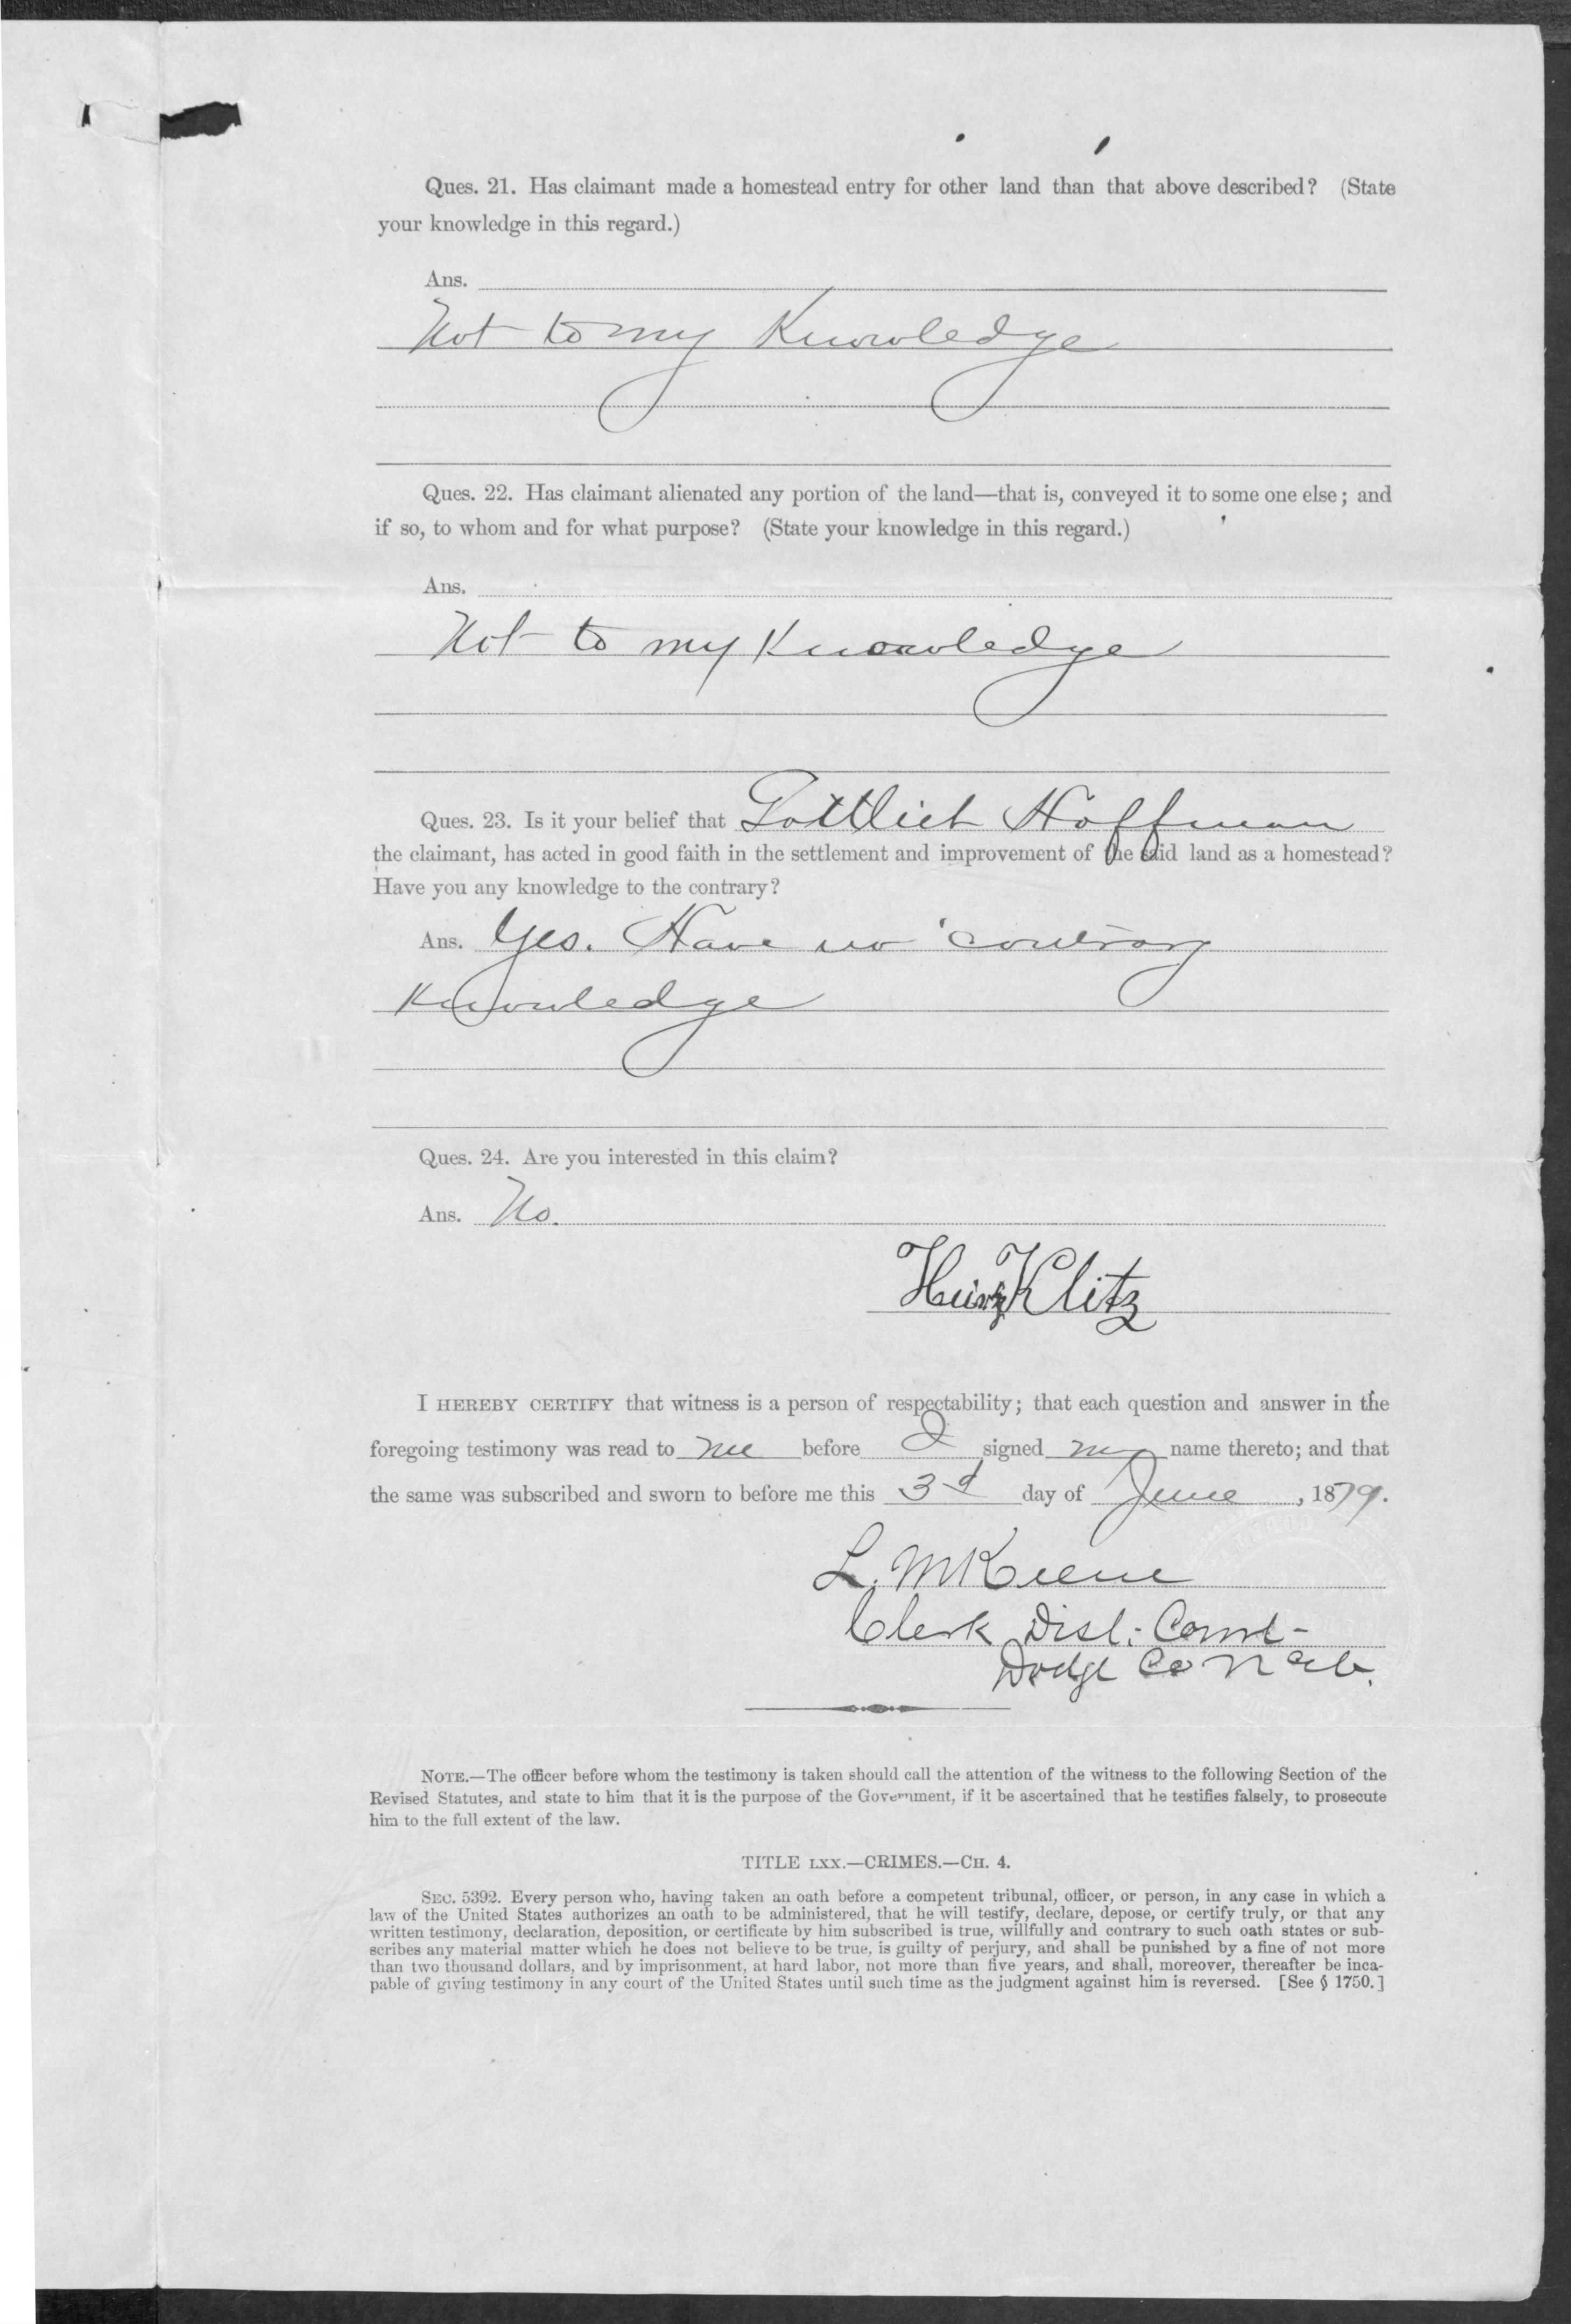 Ques. 21. Has claimant made a homestead entry for other land than that above described? (State
your knowledge in this regard.)
Ans.
Not to my Knowledge
Ques. 22. Has claimant alienated any portion of the land—that is, conveyed it to some one else; and
if so, to whom and for what purpose? (State your knowledge in this regard.)
Ans.
Not to my Knowledge
Ques. 23. Is it your belief that Gottlieb Hoffman
the claimant, has acted in good faith in the settlement and improvement of the said land as a homestead?
Have you any knowledge to the contrary?
Ans. Yes. Have no contrary
Knowledge
Ques. 24. Are you interested in this claim?
Ans. No.
Klitz
I HEREBY CERTIFY that witness is a person of respectability; that each question and answer in the
foregoing testimony was read to me before I signed my name thereto; and that
the same was subscribed and sworn to before me this 3d day of June, 1879.
L. M Keene
Clerk Dist. Court
Dodge Co Neb.
NOTE.—The officer before whom the testimony is taken should call the attention of the witness to the following Section of the
Revised Statutes, and state to him that it is the purpose of the Government, if it be ascertained that he testifies falsely, to prosecute
him to the full extent of the law.
TITLE LXX.—CRIMES.—CH. 4.
SEC. 5392. Every person who, having taken an oath before a competent tribunal, officer, or person, in any case in which a
law of the United States authorizes an oath to be administered, that he will testify, declare, depose, or certify truly, or that any
written testimony, declaration, deposition, or certificate by him subscribed is true, willfully and contrary to such oath states or sub-
scribes any material matter which he does not believe to be true, is guilty of perjury, and shall be punished by a fine of not more
than two thousand dollars, and by imprisonment, at hard labor, not more than five years, and shall, moreover, thereafter be inca-
pable of giving testimony in any court of the United States until such time as the judgment against him is reversed. [See § 1750.]